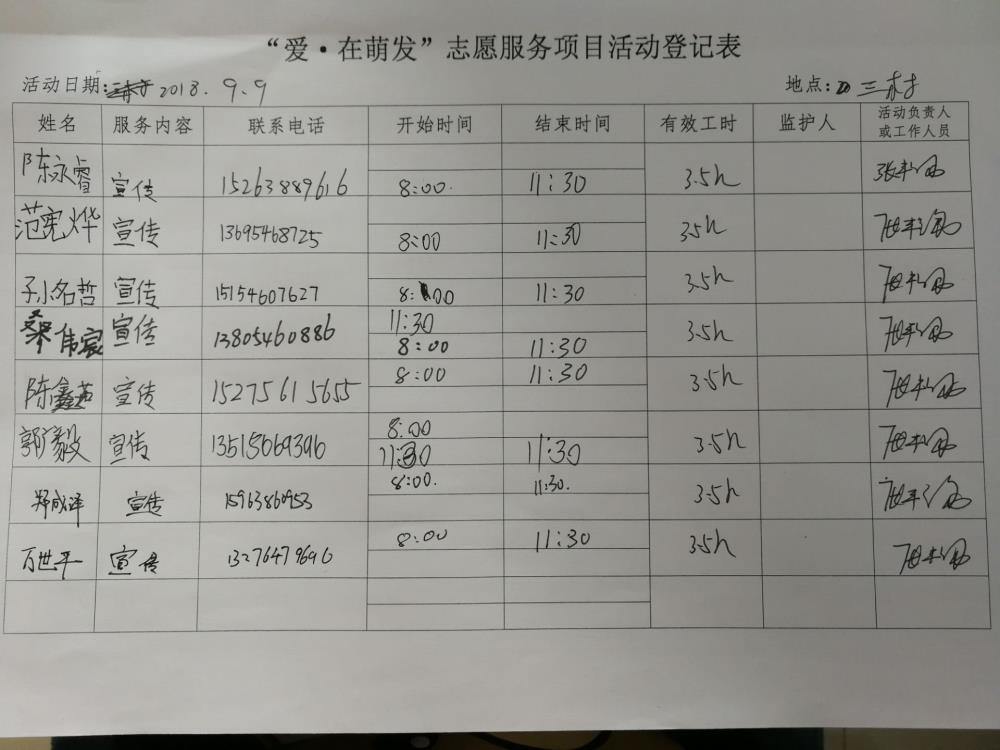 “爱·在萌发”志愿服务项目活动登记表
活动日期: 2018.9.9 地点: 三村
姓名 服务内容 联系电话 开始时间 结束时间 有效工时 监护人 活动负责人或工作人员
陈永睿 宣传 15263889616 8:00. 11:30 3.5h
范宪烨 宣传 13695468725 8:00 11:30 3.5h
孙名哲 宣传 15154607627 8:00 11:30 3.5h
11:30
桑伟宸 宣传 13805460886 8:00 11:30 3.5h
陈鑫 宣传 15275615655 8:00 11:30 3.5h
8:00
郭毅 宣传 13515669396 11:30 11:30 3.5h
郑成泽 宣传 15963860953 8:00. 11:30. 3.5h
万世平 宣传 13276479696 8:00 11:30 3.5h